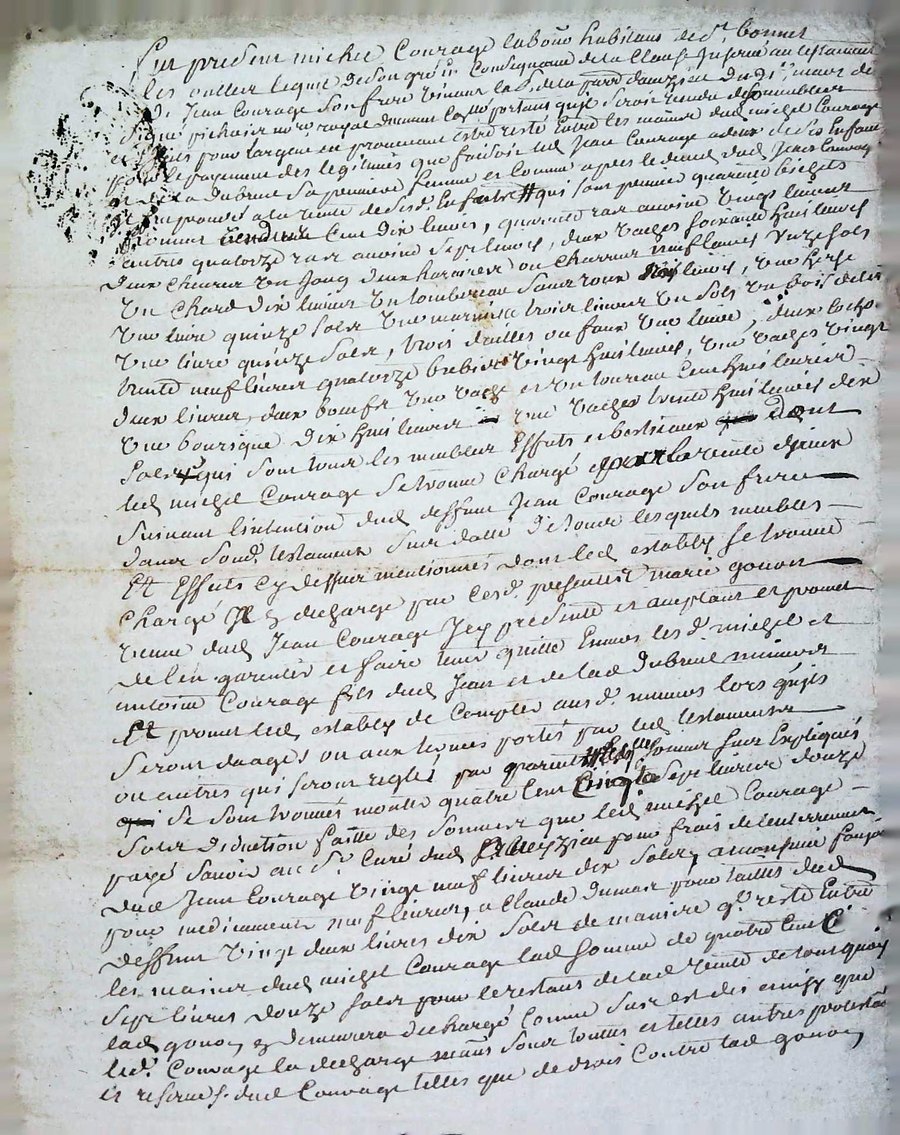 fut présent michel Courage labour habitant de St bonnet
les oulles lequel de son gré en Conséquance de la Clause Inserée au testament
de Jean Courage son frere vivant lab. de la parr dauzieu du dix mars de
signé pichaire no.re royal portant quil seroit vendu des meubles
et effets pour largent en provenant estre resté Entre les mains dud michel Courage
pour le payement des legitimes que faisoit led Jean Courage a deux de ses Enfans
et de la dubreuil sa premiere femme et Comme apres le deces dud Jean Courage
a la vente de sesd. Effaits # qui sont premier quarante bichets
froment cent dix livres, quarante ras avoine vingt livres
autres quatorze ras avoine sept livres, deux vaches soixante huit livres
deux charrues un Joug deux haraires ou charrues neuf livres unze sols
un Chard dix livres un tombereau sans roux trois livres, une herse
une livre quinze sols une marmitte trois livres un sols un bois de lit
une livre quinze sols, trois dailles ou faux une livre, deux cochons
trente neuf livres quatorze brebis vingt huit livres, une vaches vingt
deux livres, deux boeufs une vache et un toureau Cent huit livres
une bourique dix huit livres une vaches trente huit livres dix
sols qui sont tous les meubles Effaits et bestiaux dont
led michel Courage se trouve chargé par la vente
suivant l'intention dud deffunt Jean Courage son frere
dans sond. testament sus datté de tous lesquels meubles
Et Effaits cy dessus mentionnés dont led establÿ se trouve
Chargé Il decharge par ces d. presentes marie gonon
veuve dud Jean Courage Icy presente et aceptant et promet
de l'en garentir et faire tenir quitte Envers les d. michel et
antoine Courage fils dud Jean et de lad dubreuil mineurs
Et promet led establÿ de Compter aus d. mineurs lors quils
seront daages ou aux termes portés par led testament
ou autres qui seront reglés par parents les sommes sus Expliqués
se sont trouvés monter quatre Cent Cinq sept livres douze
sols deduction faitte des sommes que led michel Courage
payé savoir au Sr Curé dud pour frais de l'enterrement
dud Jean Courage vingt neuf livres dix sols, a monsieur
pour medicaments neuf livres, a Claude dumas pour tailles dud
deffunt vingt deux livres dix sols de maniere q.l reste Entre
les mains dud michel Courage lad somme de quatre Cent
sept livres douze sols pour le restant de lad vente de tout quoy
lad gonon demeurera dechargé Comme sus est dis ainsy que
led. Courage la decharge mais sous toutes et telles autres protestaõns
et reserves dud Courage telles que de droit Contre lad gonon